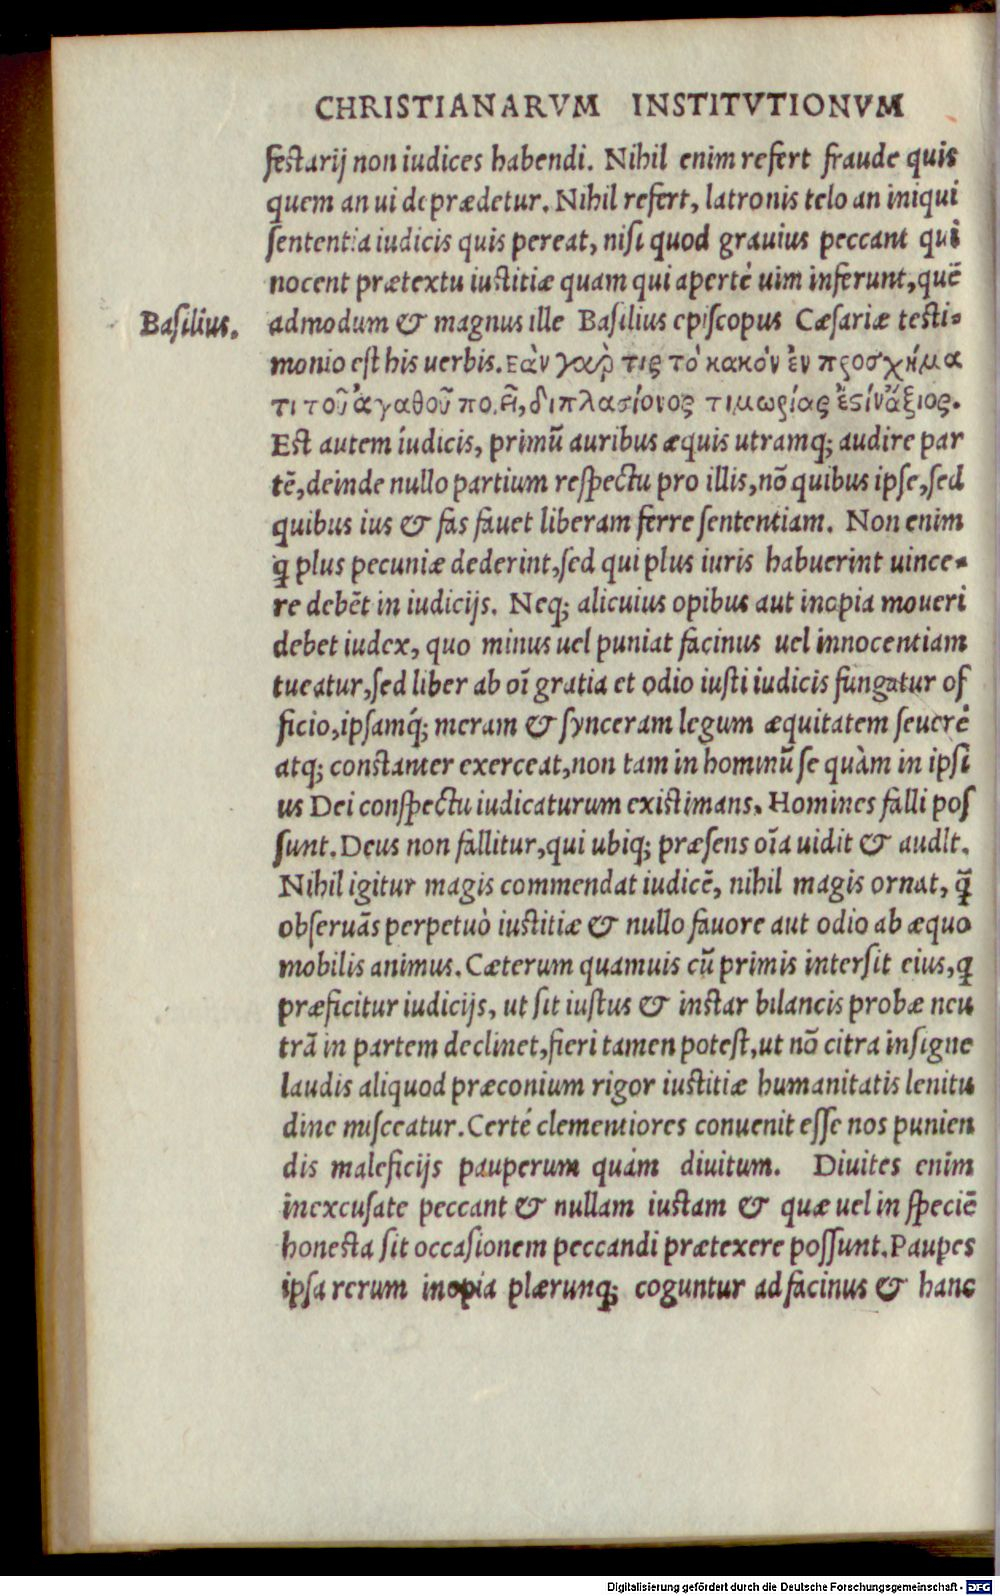 CHRISTIANARVM INSTITVTIONVM
festarij non iudices habendi. Nihil enim refert fraude quis
quem an ui deprædetur. Nihil refert, latronis telo an iniqui
sententia iudicis quis pereat, nisi quod grauius peccant qui
nocent prætextu iustitiæ quam qui aperté uim inferunt, quē
Basilius.
admodum & magnus ille Basilius episcopus Cæsariæ testi-
monio est his uerbis. εὰν γαρ̀ τις τὸ κακόν ἐν προσχήμα
τι τοῦ ἀγαθοῦ ποιῇ, διπλασίονος τιμωρίας ἐστίν ἄξιος.
Est autem iudicis, primū auribus æquis utramq; audire par
tē, deinde nullo partium respectu pro illis, nō quibus ipse, sed
quibus ius & fas fauet liberam ferre sententiam. Non enim
q plus pecuniæ dederint, sed qui plus iuris habuerint uince-
re debēt in iudicijs. Neq; alicuius opibus aut inopia moueri
debet iudex, quo minus uel puniat facinus uel innocentiam
tueatur, sed liber ab oī gratia et odio iusti iudicis fungatur of
ficio, ipsamq́; meram & synceram legum æquitatem seueré
atq; constanter exerceat, non tam in hominū se quàm in ipsi
us Dei conspectu iudicaturum existimans. Homines falli pos
sunt. Deus non fallitur, qui ubiq; præsens oīa uidit & audit.
Nihil igitur magis commendat iudicē, nihil magis ornat, q̄
obseruās perpetuò iustitiæ & nullo fauore aut odio ab æquo
mobilis animus. Cæterum quamuis cū primis intersit eius, q
præficitur iudicijs, ut sit iustus & instar bilancis probæ neu
trā in partem declinet, fieri tamen potest, ut nō citra insigne
laudis aliquod præconium rigor iustitiæ humanitatis lenitu
dine misceatur. Certé clementiores conuenit esse nos punien
dis maleficijs pauperum quàm diuitum. Diuites enim
inexcusate peccant & nullam iustam & quæ uel in speciē
honesta sit occasionem peccandi prætexere possunt. Paupes
ipsa rerum inopia plærunq; coguntur ad facinus & hanc
Digitalisierung gefördert durch die Deutsche Forschungsgemeinschaft - DFG